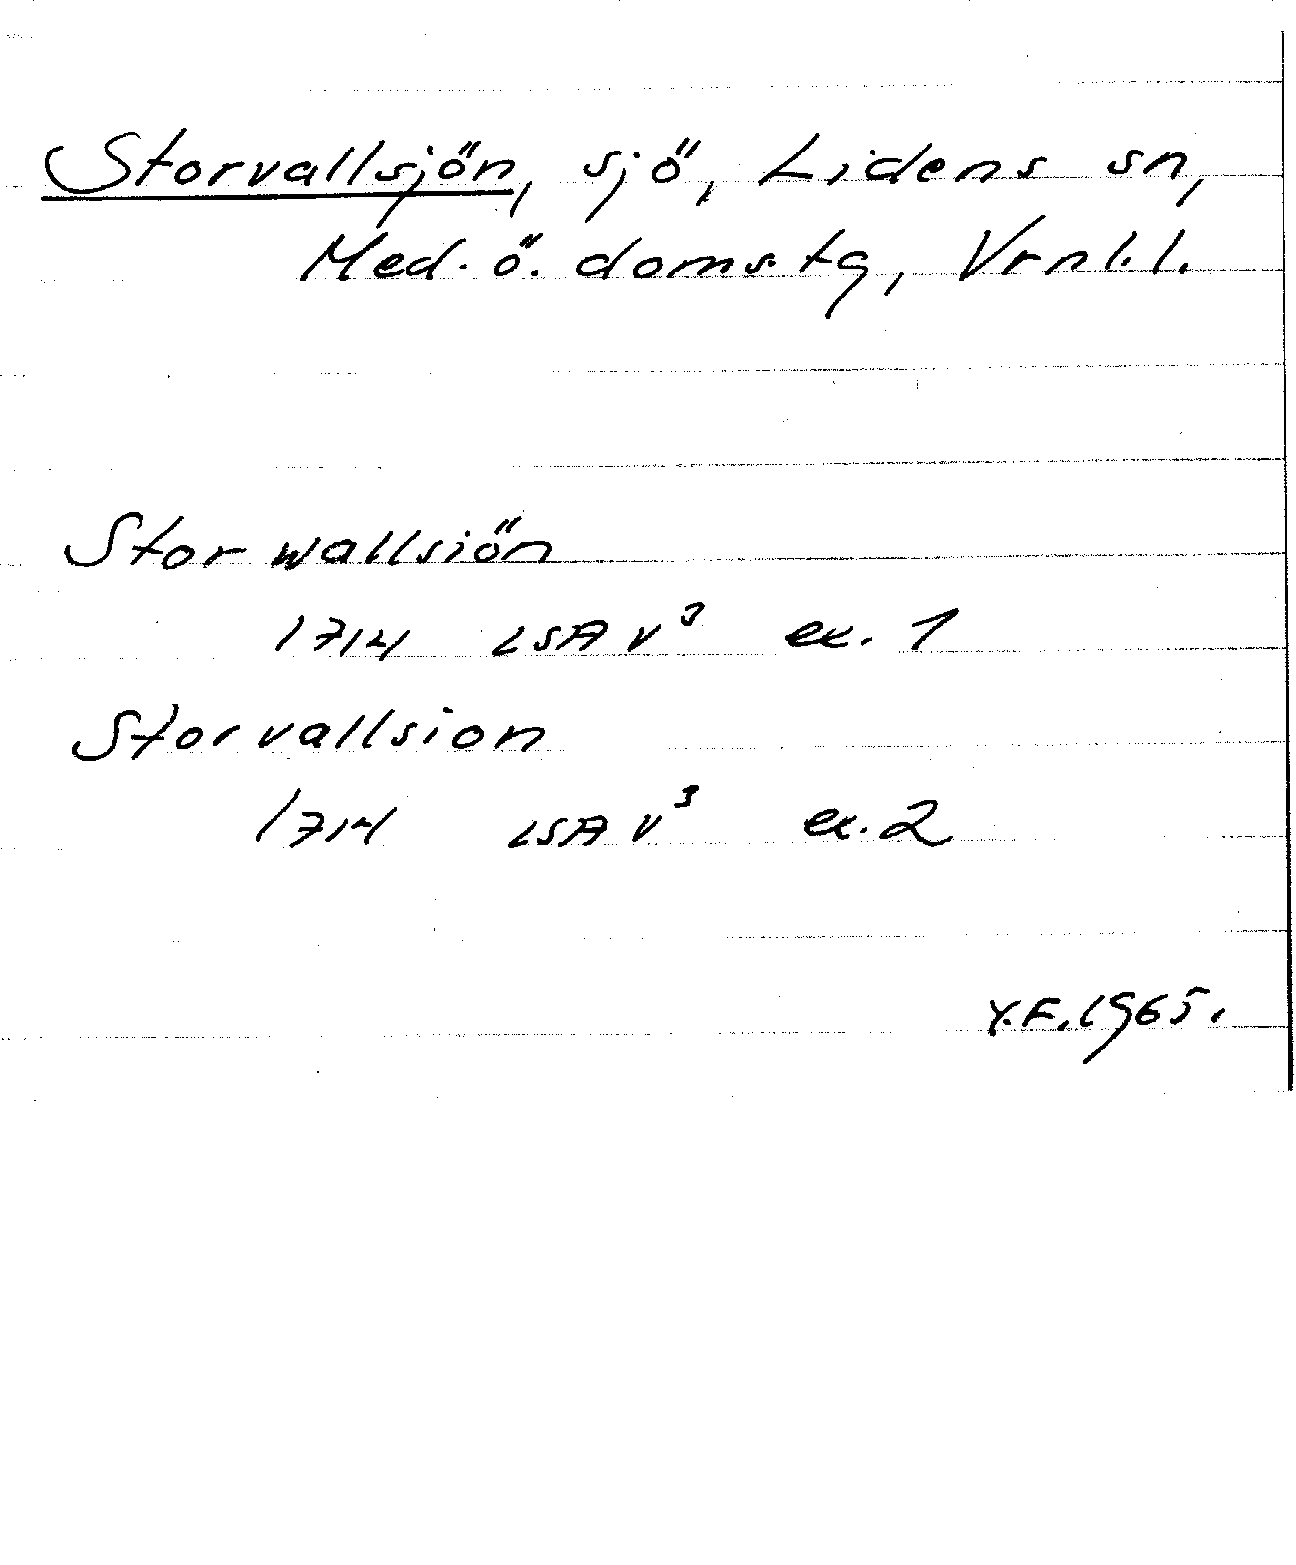 Storvallsjön, sjö, Lidens sn,
Med. ö. doms. tg, Vrnl. l.
Stor wallsiön
1714 LSA V³ ex. 1
Stor vallsion
1714 LSA V³ ex. 2
Y.F. 1965.